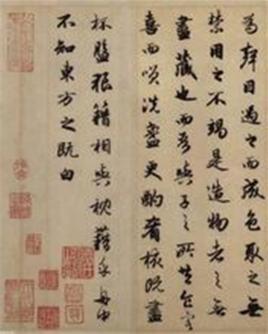 為聲目遇之而成色取之無
禁用之不竭是造物者之無
盡藏也而吾與子之所共食客
喜而笑洗盞更酌肴核既盡
杯盤狼籍相與枕藉乎舟中
不知東方之既白